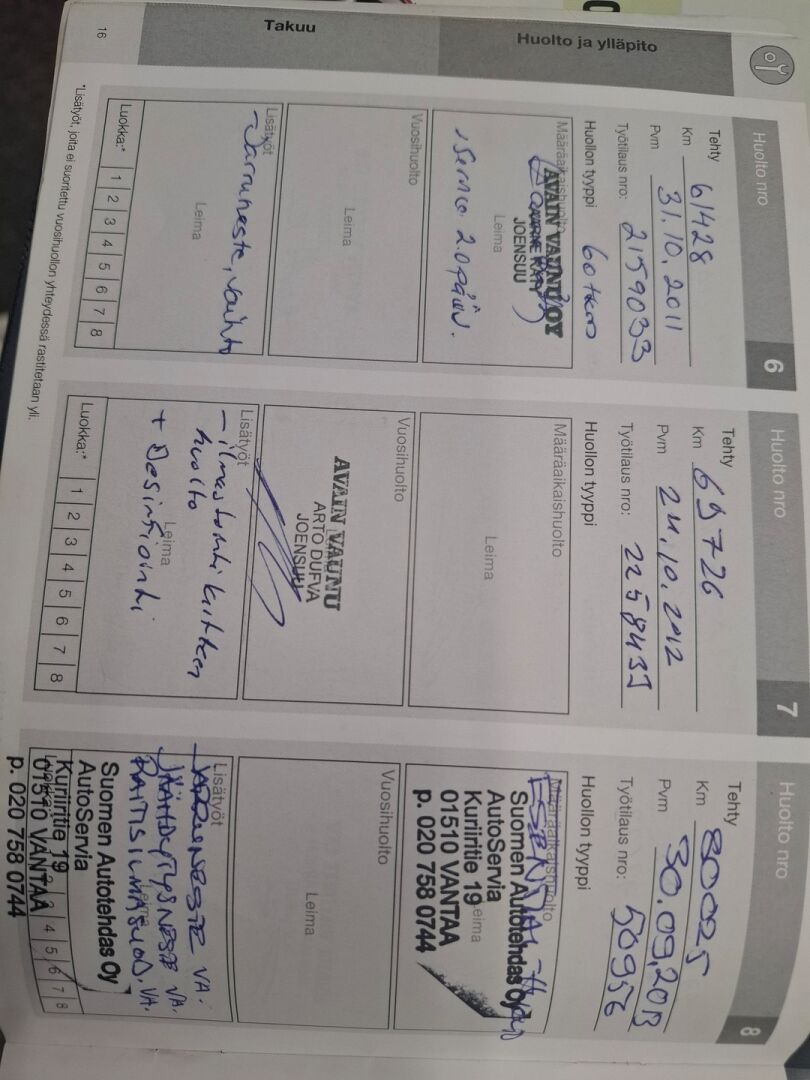 Huolto ja ylläpito
Takuu
16
Huolto nro
6
Tehty
Km 61428
Pvm 31.10.2011
Työtilaus nro: 2159033
Huollon tyyppi 60 tkm
Määräaikaishuolto
AVAIN VAUNU OY
JOENSUU
Leima
Vuosihuolto
Leima
Lisätyöt
- Jarruneste, vaihto
Leima
Luokka:* 1 2 3 4 5 6 7 8
Huolto nro
7
Tehty
Km 69726
Pvm 24.10.2012
Työtilaus nro: 2258439
Huollon tyyppi
Määräaikaishuolto
Leima
Vuosihuolto
AVAIN VAUNU
ARTO DUFVA
JOENSUU
Lisätyöt
- ilmastointilaitteen
huolto
Leima
+ Desinfiointi
Luokka:* 1 2 3 4 5 6 7 8
Huolto nro
8
Tehty
Km 80025
Pvm 30.09.2013
Työtilaus nro: 50956
Huollon tyyppi
Määräaikaishuolto
Suomen Autotehdas Oy
AutoServia
Kuriiritie 19
Leima
01510 VANTAA
p. 020 758 0744
Vuosihuolto
Leima
Lisätyöt
- JARRUNESTE VA.
JÄÄHDYTYSNESTE VA.
RAITISILMASUOD. VA.
Leima
Suomen Autotehdas Oy
AutoServia
Kuriiritie 19
01510 VANTAA
p. 020 758 0744
Luokka:* 1 2 3 4 5 6 7 8
*Lisätyöt, joita ei suoritettu vuosihuollon yhteydessä rastitetaan yli.